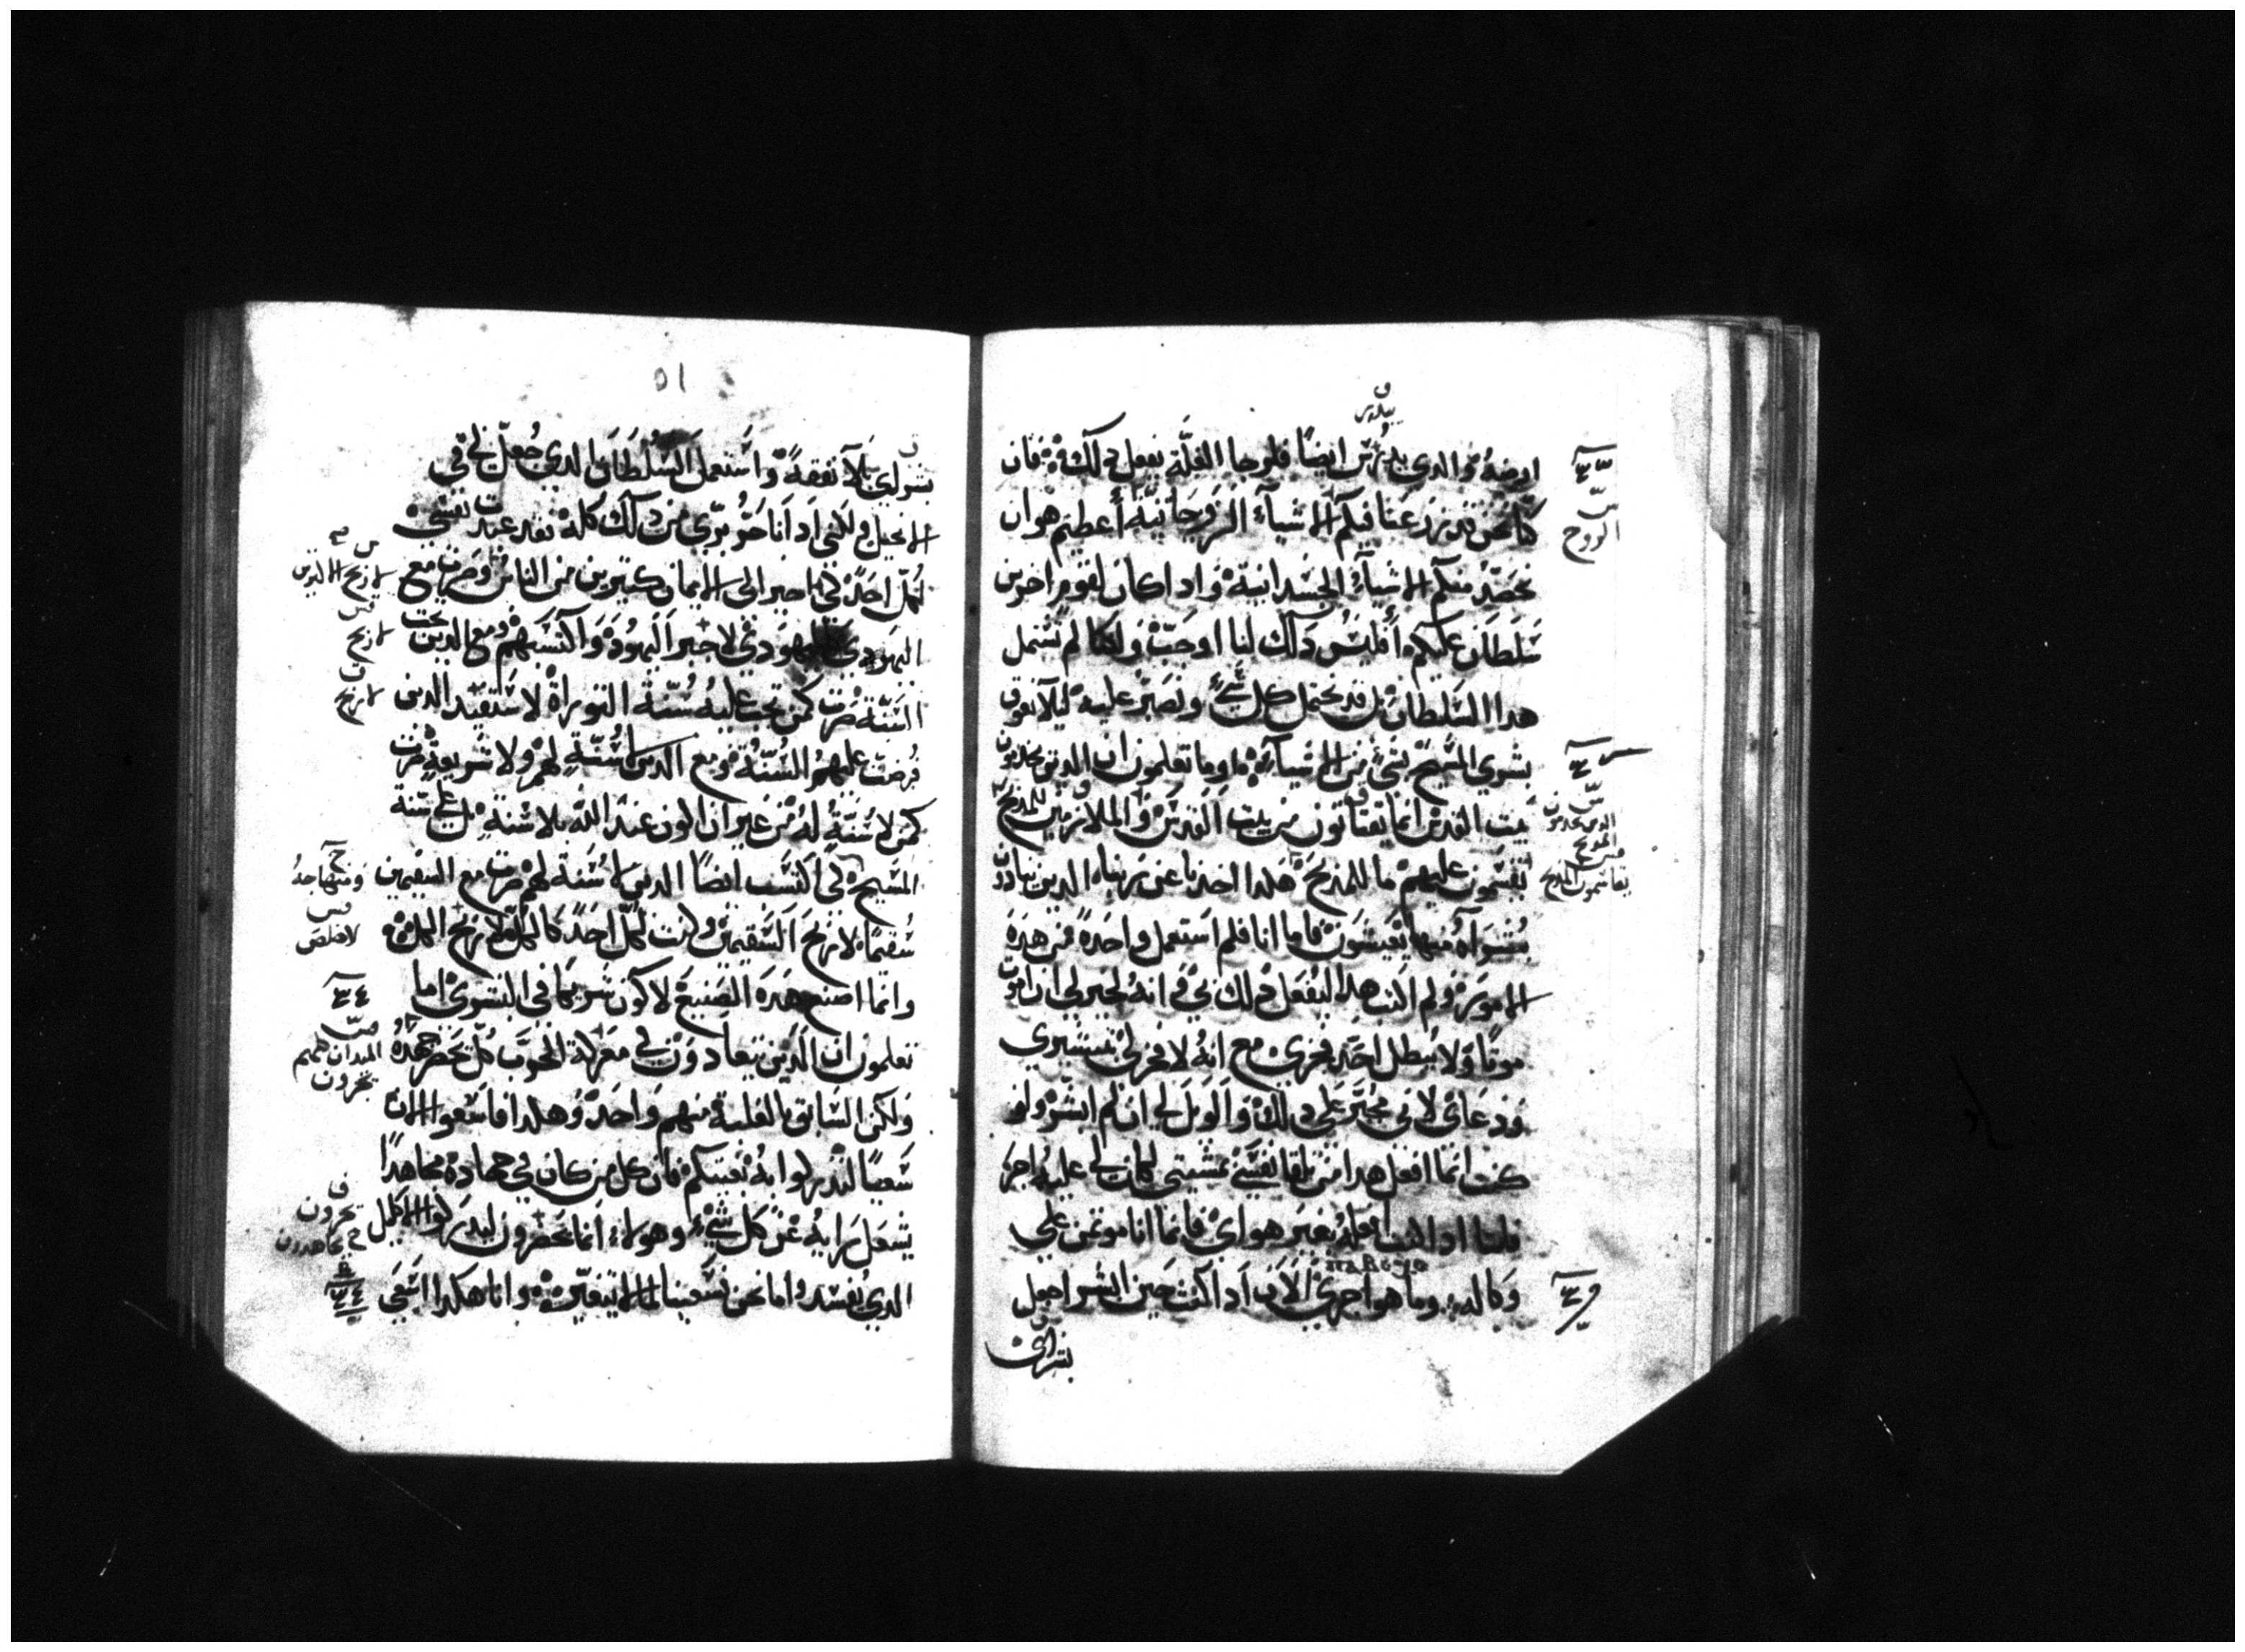 ارضهُ والدي يدرس ايضًا فلرجا الغلّة يفعل دلك فان
كنا نحن قد زرعنا فيكم الاشيآء الروحانية أعظيم هو ان
نحصد منكم الاشيآء الجسدانية واد اكان لقوم اخرين
سلطان عليكم أفليس دلك لنا اوجب ولكنا لم نستعمل
هدا السلطان بل قد نحتمل كل شيء ونصبر عليه ليلا نعوق
بشري المسيح بشيء من الاشيآء اوما تعلمون ان الدين يخدمون
بيت القدس انما يقتاتون من بيت القدس والملازمين للمدبح
يقسمون عليهم ما للمدبح هكدا اخدنا عن ربنا الدين ينادون
بشراه منها يعيشون فاما انا فلم استعمل واحدة من هده
الامور ولم اكتب هدا ليفعل دلك بي فانه لخير لي ان اموت
موتًا ولا يبطل احد فخري مع انهُ لا فخر لي بتبشيري
ودعاي لاني مجبر علي دلك والويل لي ان لم ابشر ولو
كنت انما افعل هدا من تلقا نفسي بمشيتي لكان لي عليه اجر
فاما اد اكنت افعلهُ بغير هواي فانما انا موتمن علي
وكاله وما هو اجري الان اد اكنت حين ابشر اجعل
بشراي
الروح
الدين يخدمون
المدبح
يقاسمون المدبح
٥١
بشراي بلا نفقة واستعمل السلطان الدي جعل لي في
الانجيل ولكني اد انا حر بري من دلك كله فقد عبدت نفسي
لكل احد كي اجير الى الايمان كتيرين من الناس وصرت مع
اليهودي كاليهودي لاجبر اليهود واكتسبهم ومع الدين تحت
السنة صرت كمن تحت عليه سنة التوراة لاستفيد الدين
فرضت عليهم السنة ومع الدين لا سنة لهم ولا شريعة صرت
كمن لا سنة له من غير ان اكون عند الله بلا سنة بل علي سنة
المسيح لكي اكتسب ايضًا الدين لا سنة لهم صرت مع السقيمين
سقيمًا لاربح السقيمين وكنت لكل احد كالكل لاربح الكل
وانما اصنع هده الصنيع لاكون شريكا في البشري اما
تعلمون ان الدين يتعادون في معركة الحرب كل يحضر جهده
ولكن السابق بالغلبة منهم واحد وهكدا فاسعوا الان
سعيًا لتدركوا به بغيتكم فان كل من كان في جهاده مجاهدًا
يشغل رايه عن كل شيء وهولاء انما يحضرون ليدركوا الاكليل
الدي يفسد واما نحن نسعينا لما لا يتغير وانا هكدا اسعي
لاربح الدين
لاربح
لاربح
ومنهاجهُ
لاخلص
الميدان كلهم
يجرون
يجرون
يجاهدون